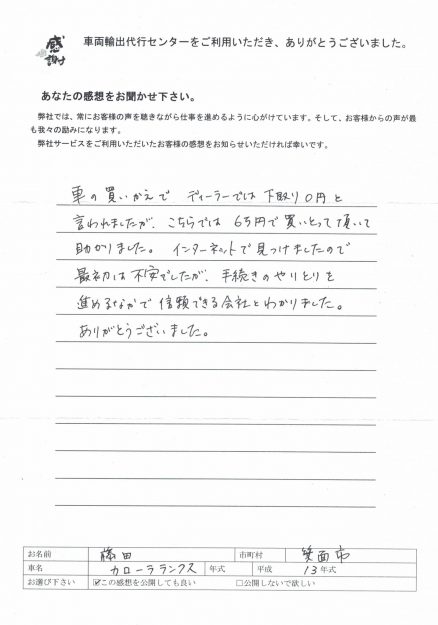 感謝
車両輸出代行センターをご利用いただき、ありがとうございました。
あなたの感想をお聞かせ下さい。
弊社では、常にお客様の声を聴きながら仕事を進めるように心がけています。そして、お客様からの声が最
も我々の励みになります。
弊社サービスをご利用いただいたお客様の感想をお知らせいただければ幸いです。
車の買いかえで ディーラーでは 下取り0円と
言われましたが、こちらでは 6万円で買いとって頂いて
助かりました。 インターネットで見つけましたので
最初は不安でしたが、手続きのやりとりを
進めるなかで信頼できる会社とわかりました。
ありがとうございました。
お名前 藤田 市町村 箕面市
車名 カローラランクス 年式 平成 13年式
お選び下さい ☑この感想を公開しても良い □公開しないで欲しい